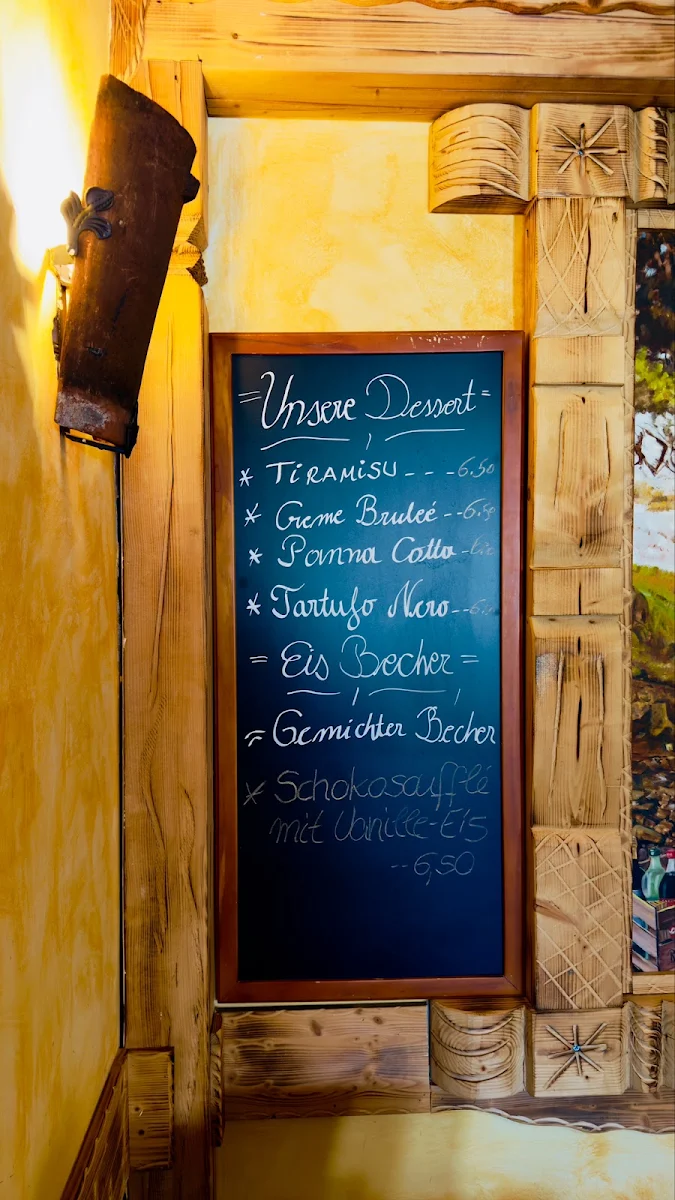 = Unsere Dessert =
* TiRAMiSU - - - 6.50
* Creme Bruleé - - 6.50
* Panna Cotta
* Tartufo Nero - -
= Eis Becher =
Gemichter Becher
* Schokosoufflé
mit Vanille-Eis
-- 6,50